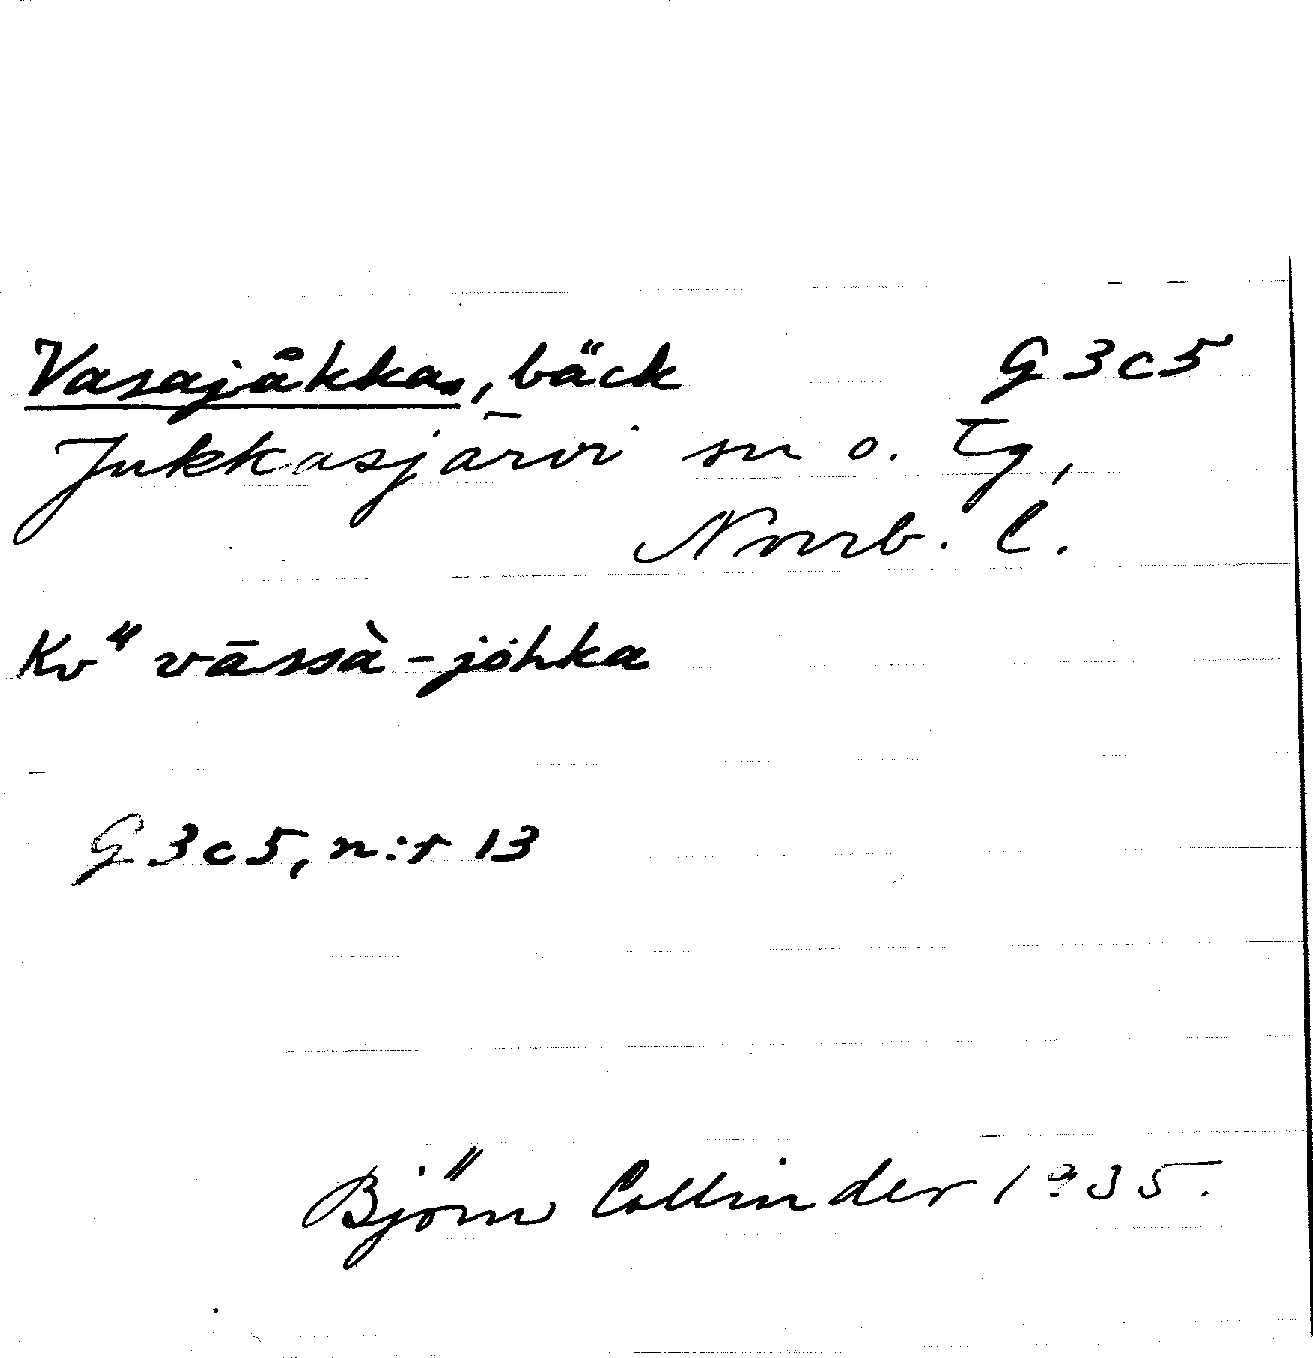 Vasajåkka, bäck G3c5
Jukkasjärvi sn o. tg,
Norrb. l.
Kv" vāssà-jòhka
G3c5, n:r 13
Björn Collinder 1935.